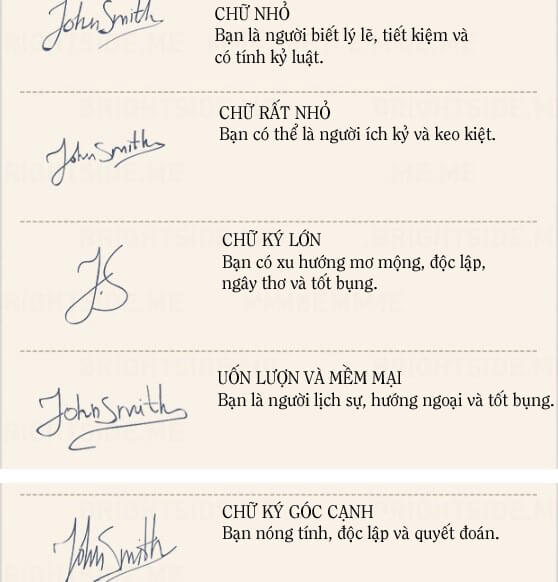 John Smith
CHỮ NHỎ
Bạn là người biết lý lẽ, tiết kiệm và
có tính kỷ luật.
CHỮ RẤT NHỎ
Bạn có thể là người ích kỷ và keo kiệt.
John Smith
CHỮ KÝ LỚN
Bạn có xu hướng mơ mộng, độc lập,
ngây thơ và tốt bụng.
JS
UỐN LƯỢN VÀ MỀM MẠI
Bạn là người lịch sự, hướng ngoại và tốt bụng.
John Smith
CHỮ KÝ GÓC CẠNH
Bạn nóng tính, độc lập và quyết đoán.
John Smith